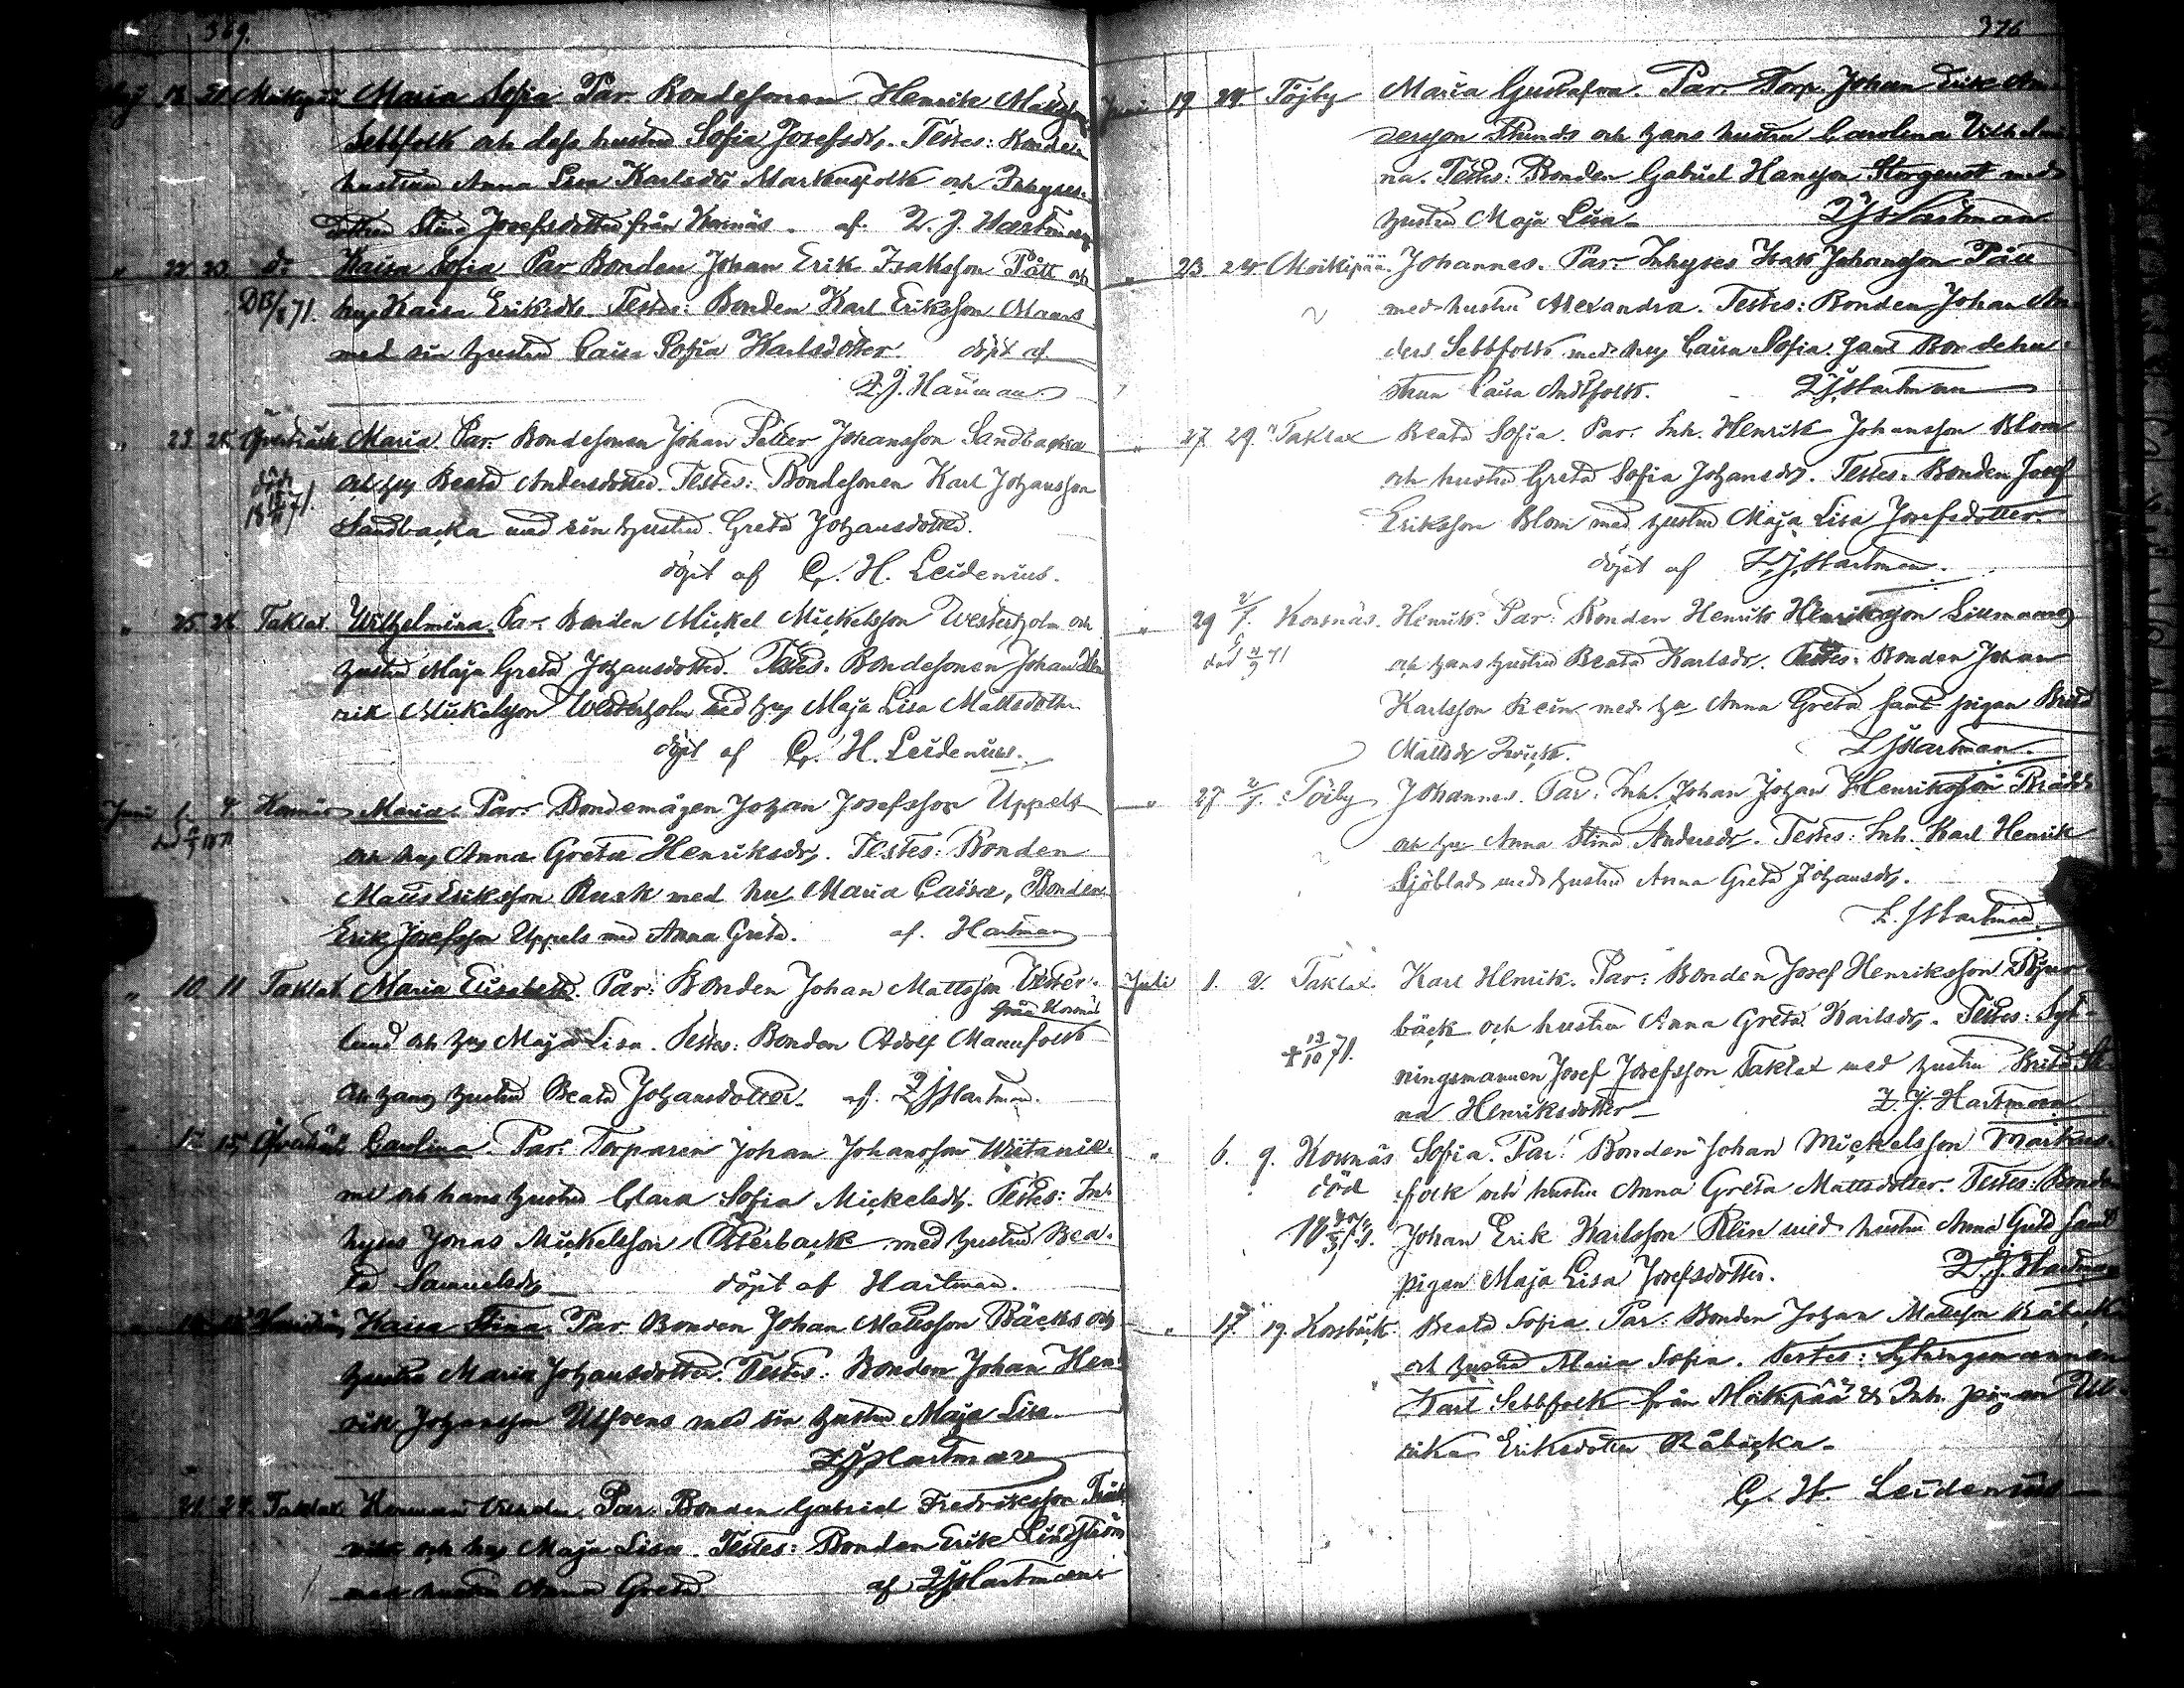 369.
Maj 18 21 Moikipää Maria Sofia Par. Bondesonen Henrik Mattsson
Sebbfolk och dess hustru Sofia Josefsdr. Testes: Bonde-
hustrun Anna Lisa Karlsdr Markusfolk och Inhyses-
dottren Stina Josefsdotter från Korsnäs. af. L. J. Hartman
" 22 23 do Kaisa Sofia Par Bonden Johan Erik Isaksson Pått och
71. hu Kaisa Eriksdr Testes: Bonden Karl Eriksson Maars
med sin hustru Caisa Sofia Karlsdotter. döpt af
L. J. Hartman
" 23 25 Öfverträsk Maria Par. Bondesonen Johan Petter Johansson Sandbacka
död och hu Beata Andersdotter. Testes: Bondesonen Karl Johansson
71. Sandbacka med sin hustru Greta Johansdotter.
döpt af C. H. Leidenius.
" 25 26 Taklax. Wilhelmina. Par. Bonden Mickel Mickelsson Westerholm och
hustru Maja Greta Johansdotter. Testes. Bondesonen Johan Hen
rik Mickelsson Westerholm med hu Maja Lisa Mattsdotter
döpt af C. H. Leidenius.
Juni 1. 4. Korsnäs Maria. Par. Bondemågen Johan Josefsson Uppels
och hu Anna Greta Henriksdr. Testes: Bonden
Matts Eriksson Rusk med hu Maria Caisa, Bonden
Erik Josefsson Uppels med Anna Greta. af. Hartman
" 10 11 Taklax Maria Elisabeth. Par: Bonden Johan Mattsson Wester-
från Korsnäs
lund och hu Maja Lisa. Testes: Bonden Adolf Mannfolk
och hans hustru Beata Johansdotter. af. L J Hartman.
15 Öfverträsk Carolina. Par: Torparen Johan Johansson Wiitanie-
mi och hans hustru Clara Sofia Mickelsdr. Testes: In-
hyses Jonas Mickelsson Österback med hustru Bea-
ta Samuelsdr döpt af Hartman.
Kaisa Stina. Par. Bonden Johan Mattsson Bäcks och
hustru Maria Johansdotter. Testes: Bonden Johan Hen-
rik Johansson Utfvens med sin hustru Maja Lisa.
L J Hartman
21. 22. Taklax Herman Vilhelm. Par. Bonden Gabriel Fredriksson Träsk
vik och hu Maja Lisa. Testes: Bonden Erik Lindström
med hustru Anna Greta. af L J Hartman
376
Juni 19 24 Töjby Maria Gustafva. Par. Torp. Johan Erik An-
dersson Strands och hans hustru Carolina Vilhelmi
na. Testes: Bonden Gabriel Hansson Storgeust med
hustru Maja Lisa. L J Hartman
" 23 24 Moikipää. Johannes. Par. Inhyses Isak Johansson Pått
med hustru Alexandra. Testes: Bonden Johan An-
ders Sebbfolk med hu Caisa Sofia samt Bondehu-
strun Caisa Andtfolk. L J Hartman
" 27 29 Taklax Beata Sofia. Par. Inh. Henrik Johansson Blom
och hustru Greta Sofia Johansdr. Testes. Bonden Josef
Eriksson Blom med hustru Maja Lisa Josefsdotter.
döpt af L J Hartman.
" 29 2/7. Korsnäs. Henrik. Par: Bonden Henrik Henriksson Lillmanns
död 71 och hans hustru Beata Karlsdr. Testes: Bonden Johan
Karlsson Rein med hu Anna Greta samt pigan Brita
Mattsdr L J Hartman.
" 27 2/7. Töjby Johannes. Par. Inh. Johan Johan Henriksson Bredd
och hu Anna Stina Andersdr. Testes: Inh. Karl Henrik
Sjöblad med hustru Anna Greta Johansdr.
L. J Hartman
Juli 1. 2. Taklax. Karl Henrik. Par: Bonden Josef Henriksson Bjur-
bäck och hustru Anna Greta Karlsdr. Testes: Syt-
† 13/10 71. ningsmannen Josef Josefsson Taklax med hustru Brita Sti-
na Henriksdotter L. J. Hartman
" 6. 9. Korsnäs Sofia. Par: Bonden Johan Mickelsson Markus-
död folk och hustru Anna Greta Mattsdotter. Testes: Bonden
Johan Erik Karlsson Rein med hustru Anna Greta samt
pigan Maja Lisa Josefsdotter. L. J. Hartman
" 17. 19. Korsbäck Beata Sofia. Par: Bonden Johan Mattsson Råback
och hustru Maria Sofia. Testes: Sytningsmannen
Karl Sebbfolk från Moikipää & Inh. pigan Ul-
rika Eriksdotter Råbacka.
C. H. Leidenius